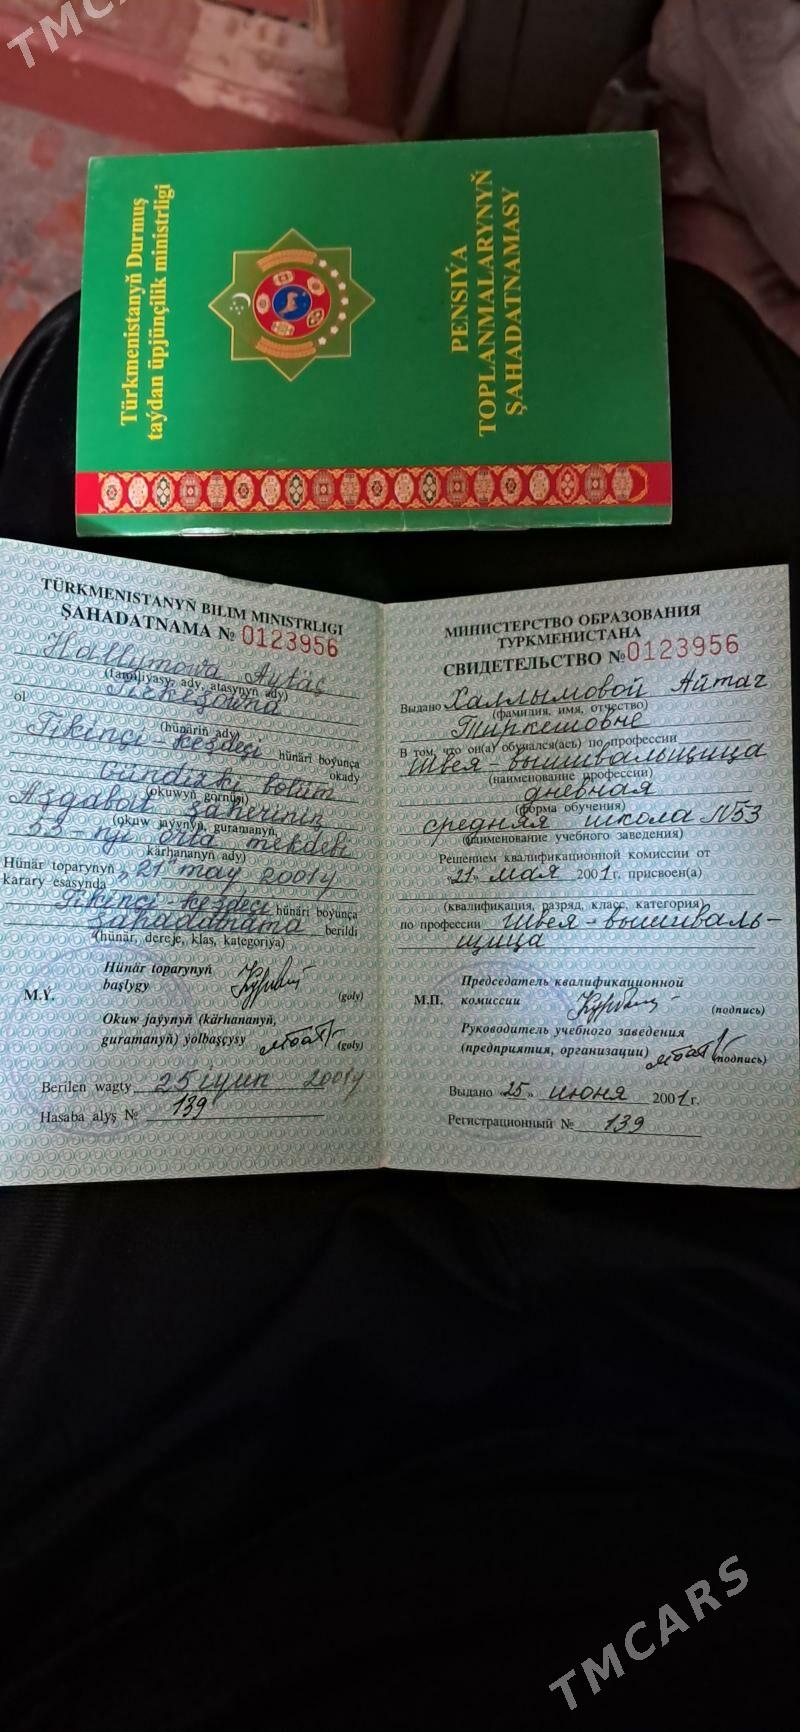 TMCARS
Türkmenistanyň Durmuş
taýdan üpjünçilik ministrligi
PENSIÝA
TOPLANMALARYNYŇ
ŞAHADATNAMASY
TÜRKMENISTANYŇ BILIM MINISTRLIGI
ŞAHADATNAMA № 0123956
Hallymowa Aýtäç
(familiýasy, ady, atasynyň ady)
ol Tirkeşowna
(hünäriň ady)
Tikinçi-keşdeçi hünäri boýunça
okady
Gündizki bölüm
(okuwyň görnüşi)
Aşgabat şäheriniň
(okuw jaýynyň, guramanyň,
53-nji orta mekdebi
kärhananyň ady)
Hünär toparynyň „21 maý 2001ý
karary esasynda
Tikinçi-keşdeçi hünäri boýunça
şahadatnama berildi
(hünär, dereje, klas, kategoriýa)
Hünär toparynyň
başlygy
(goly)
M.Ý.
Okuw jaýynyň (kärhananyň,
guramanyň) ýolbaşçysy
(goly)
Berilen wagty 25 iýun 2001ý
Hasaba alyş № 139
МИНИСТЕРСТВО ОБРАЗОВАНИЯ
ТУРКМЕНИСТАНА
СВИДЕТЕЛЬСТВО №0123956
Выдано Халлымовой Айтач
(фамилия, имя, отчество)
Тиркешовне
В том, что он(а) обучался(ась) по профессии
Швея-вышивальщица
(наименование профессии)
дневная
(форма обучения)
средняя школа N53
(наименование учебного заведения)
Решением квалификационной комиссии от
«21» мая 2001г. присвоен(а)
(квалификация, разряд, класс, категория)
по профессии Швея-вышиваль-
щица
Председатель квалификационной
М.П. комиссии
(подпись)
Руководитель учебного заведения
(предприятия, организации)
(подпись)
Выдано «25» июня 2001г.
Регистрационный № 139
TMCARS